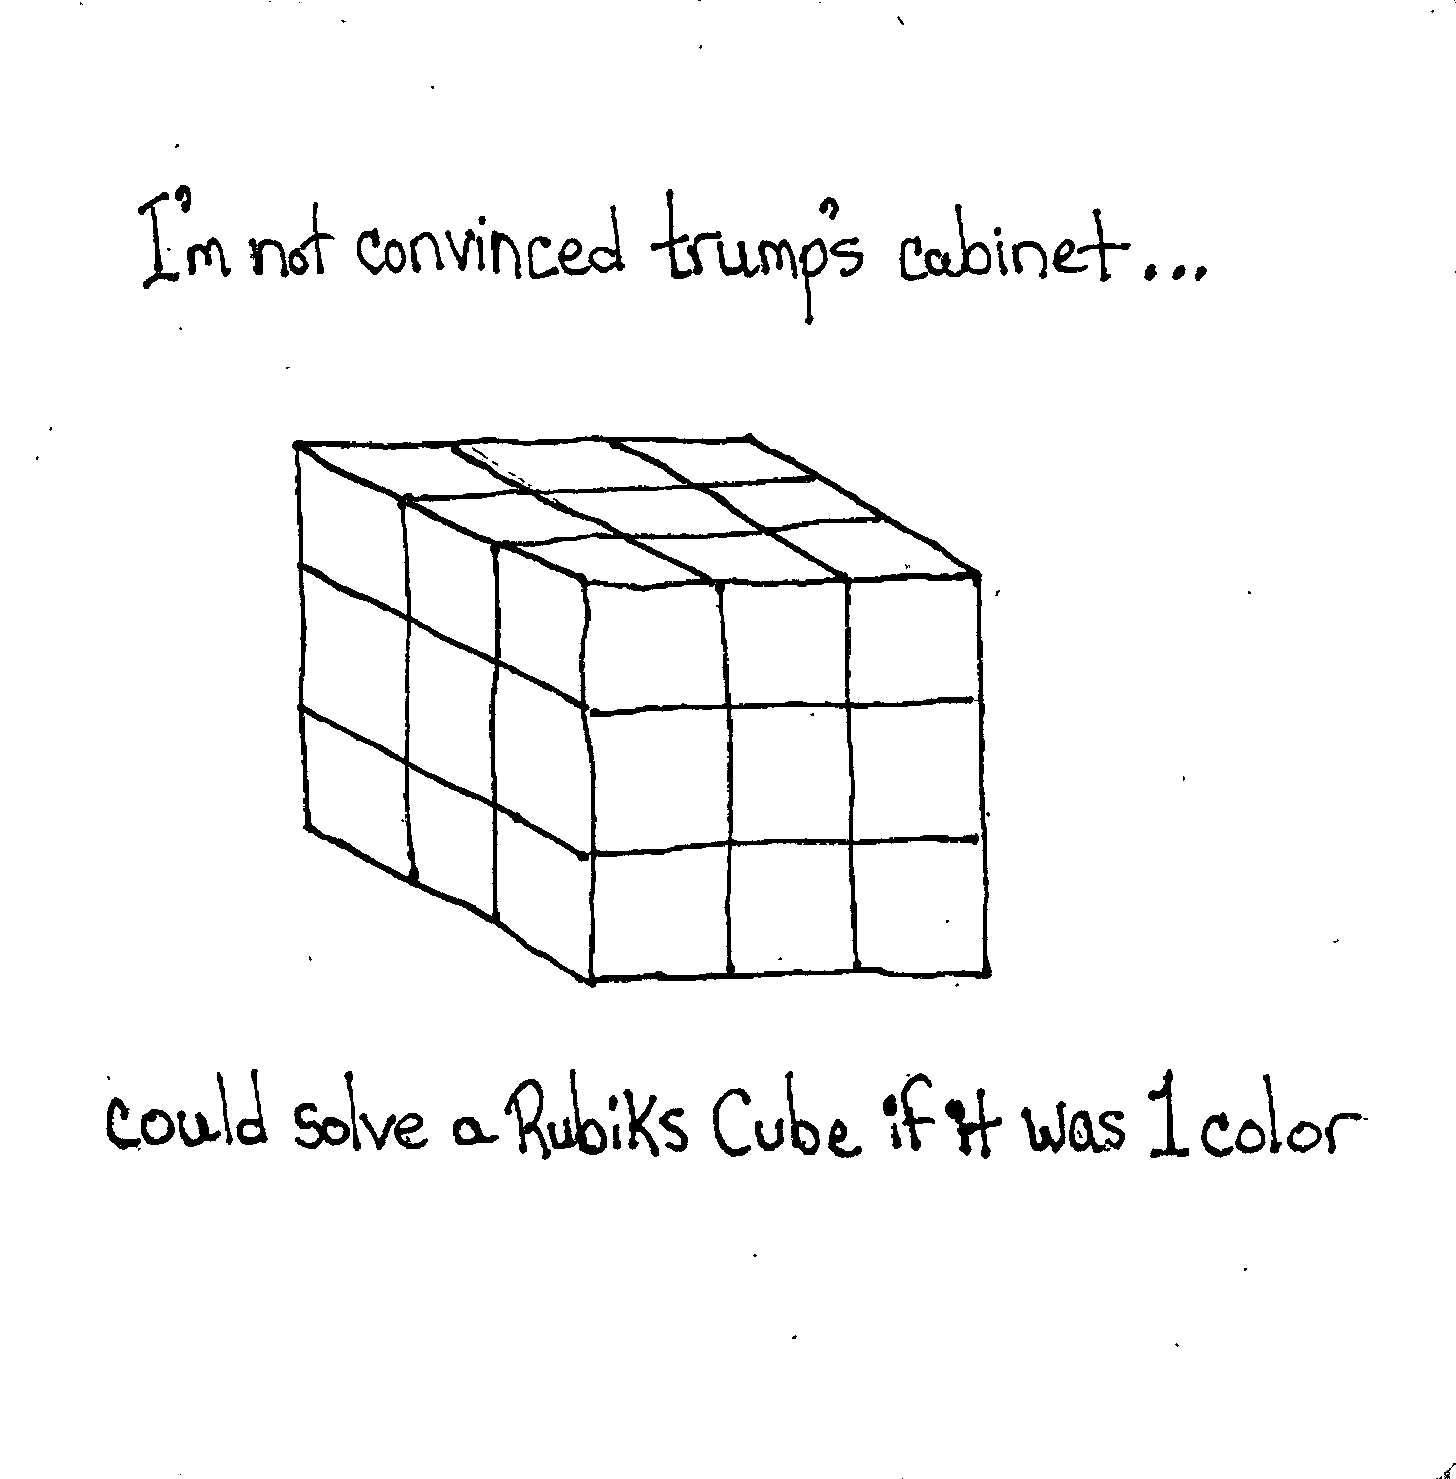 I'm not convinced trump's cabinet...
could solve a Rubiks Cube if it was 1 color